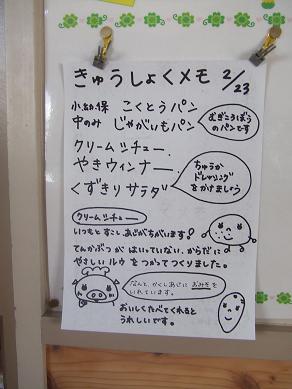 きゅうしょくメモ 2/23
小幼保 こくとうパン
中のみ じゃがいもパン
むぎこうぼう
のパンです
クリームシチュー
やきウィンナー
くずきりサラダ
ちゅうか
ドレッシング
をかけましょう
クリームシチュー
いつもとすこし、あじがちがいます!
てんかぶつがはいっていない、からだに
やさしいルウをつかってつくりました。
なんと、かくしあじにおみそを
いれています。
おいしくたべてくれると
うれしいです。